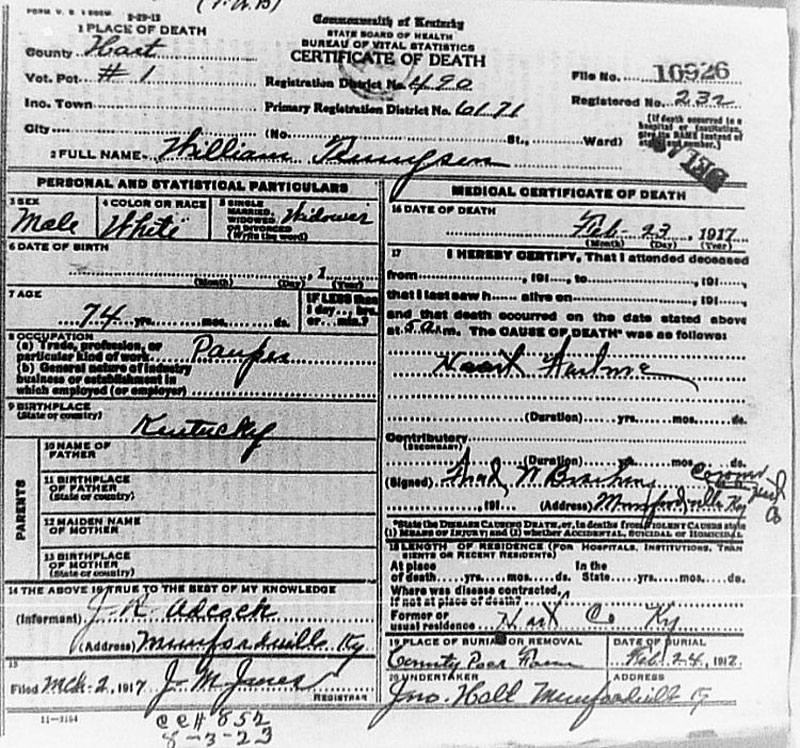 FORM V. S. 1 2-29-12
Commonwealth of Kentucky
STATE BOARD OF HEALTH
BUREAU OF VITAL STATISTICS
CERTIFICATE OF DEATH
1 PLACE OF DEATH
County Hart
Vot. Pct. # 1
Inc. Town
City
Registration District No. 490
Primary Registration District No. 6171
(No. St., Ward)
File No. 10926
Registered No. 232
(If death occurred in a hospital or institution, give its NAME instead of street and number.)
2 FULL NAME William
PERSONAL AND STATISTICAL PARTICULARS
3 SEX
Male
4 COLOR OR RACE
White
5 SINGLE MARRIED, WIDOWED OR DIVORCED (Write the word)
Widower
6 DATE OF BIRTH
, 1
(Month) (Day) (Year)
7 AGE
74 yrs. mos. ds.
IF LESS than 1 day... hrs. or... min.?
8 OCCUPATION
(a) Trade, profession, or
particular kind of work Pauper
(b) General nature of industry
business or establishment in
which employed (or employer)
9 BIRTHPLACE
(State or country)
Kentucky
PARENTS
10 NAME OF
FATHER
11 BIRTHPLACE
OF FATHER
(State or country)
12 MAIDEN NAME
OF MOTHER
13 BIRTHPLACE
OF MOTHER
(State or country)
14 THE ABOVE IS TRUE TO THE BEST OF MY KNOWLEDGE
(Informant) J. R. Adcock
(Address) Munfordville Ky
15
Filed Mch-2, 1917 J M Janes
REGISTRAR
11-3184
CC# 852
8-3-23
MEDICAL CERTIFICATE OF DEATH
16 DATE OF DEATH
Feb-23, 1917
(Month) (Day) (Year)
17 I HEREBY CERTIFY, That I attended deceased
from , 191 , to , 191 ,
that I last saw h alive on , 191 ,
and that death occurred on the date stated above
at 5 a.m. The CAUSE OF DEATH* was as follows:
Heart Failure
(Duration) yrs. mos. ds.
Contributory
(SECONDARY)
(Duration) yrs. mos. ds.
(Signed) Thad W Coroner Hart Co
, 191 (Address) Munfordville Ky
*State the DISEASE CAUSING DEATH, or, in deaths from VIOLENT CAUSES state
(1) MEANS OF INJURY; and (2) whether ACCIDENTAL, SUICIDAL or HOMICIDAL
18 LENGTH OF RESIDENCE (FOR HOSPITALS, INSTITUTIONS, TRAN
SIENTS OR RECENT RESIDENTS)
At place In the
of death yrs. mos. ds. State yrs. mos. ds.
Where was disease contracted,
if not at place of death?
Former or
usual residence Hart Co Ky
19 PLACE OF BURIAL OR REMOVAL
County Poor Farm
DATE OF BURIAL
Feb 24, 1917
20 UNDERTAKER ADDRESS
Jno. Hall Munfordville Ky